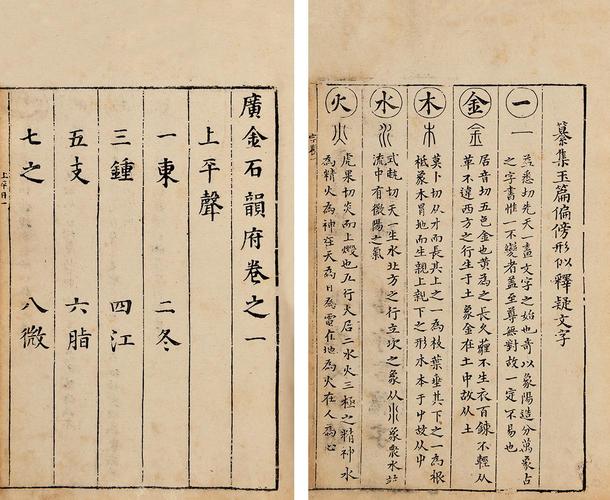 纂集玉篇偏傍形似釋疑文字
一
一
益悉切先天一畫文字之始也奇以象陽造分萬象占
之字書惟一不變者蓋至尊無對故一定不易也
金
金
居音切五色金也黃為之長久薶不生衣百鍊不輕从
革不違西方之行生于土象金在土中故从土
木
木
莫卜切从才而長其上之一為枝葉垂其下之一為根
柢象木冒地而生親上親下之形木本于屮故从屮
水
水
式軌切天一生水北方之行立坎之象从水象衆水竝
流中有微陽之氣
火
火
虎果切炎而上燬也五行天居二水火三極之精神水
為精火為神在天為日為電在地為火在人為心
廣金石韻府卷之一
上平聲
一東 二冬
三鍾 四江
五支 六脂
七之 八微